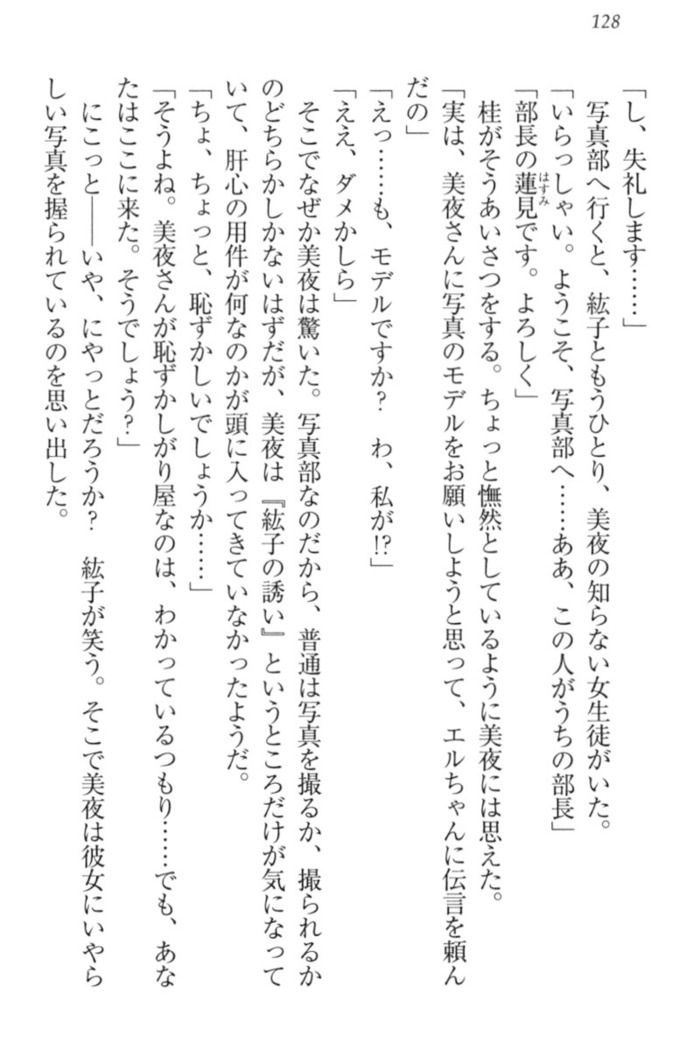 128
「し、失礼します……」
　写真部へ行くと、紘子ともうひとり、美夜の知らない女生徒がいた。
「いらっしゃい。ようこそ、写真部へ……ああ、この人がうちの部長」
「部長の蓮見です。よろしく」
　桂がそうあいさつをする。ちょっと憮然としているように美夜には思えた。
「実は、美夜さんに写真のモデルをお願いしようと思って、エルちゃんに伝言を頼ん
だの」
「えっ……も、モデルですか？　わ、私が!?」
「ええ、ダメかしら」
　そこでなぜか美夜は驚いた。写真部なのだから、普通は写真を撮るか、撮られるか
のどちらかしかないはずだが、美夜は『紘子の誘い』というところだけが気になって
いて、肝心の用件が何なのかが頭に入ってきていなかったようだ。
「ちょ、ちょっと、恥ずかしいでしょうか……」
「そうよね。美夜さんが恥ずかしがり屋なのは、わかっているつもり……でも、あな
たはここに来た。そうでしょう？」
　にこっと――いや、にやっとだろうか？　紘子が笑う。そこで美夜は彼女にいやら
しい写真を握られているのを思い出した。